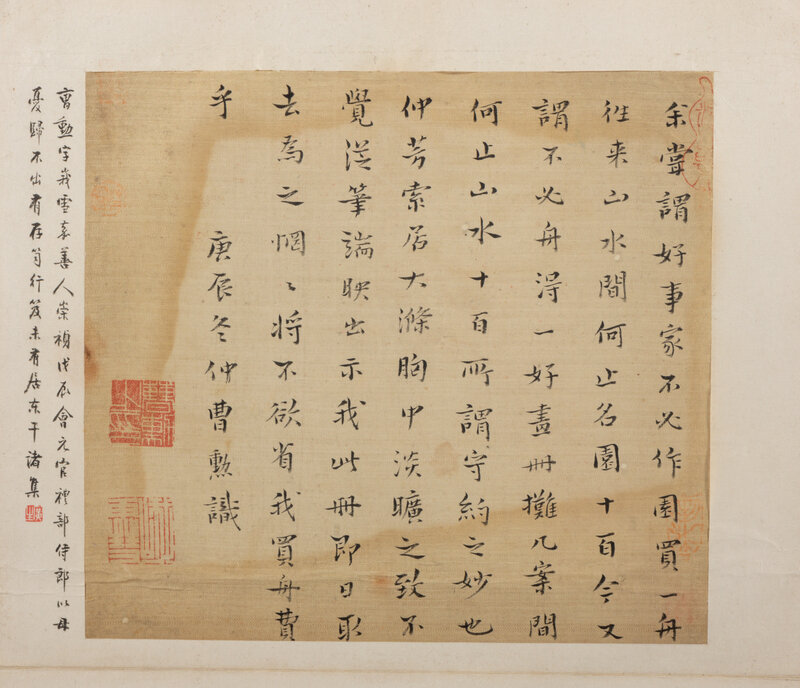 余嘗謂好事家不必作園買一舟
往来山水間何止名園十百今又
謂不必舟得一好畫冊攤几案間
何止山水十百所謂守約之妙也
仲芳索居大滌胸中淡曠之致不
覺從筆端映出示我此冊即日取
去為之惘〻將不欲省我買舟費
乎
庚辰冬仲曹勲識
曹勲字峩雪嘉善人崇禎戊辰會元官禮部侍郎以母
憂歸不出有存笥行笈未有居東干諸集